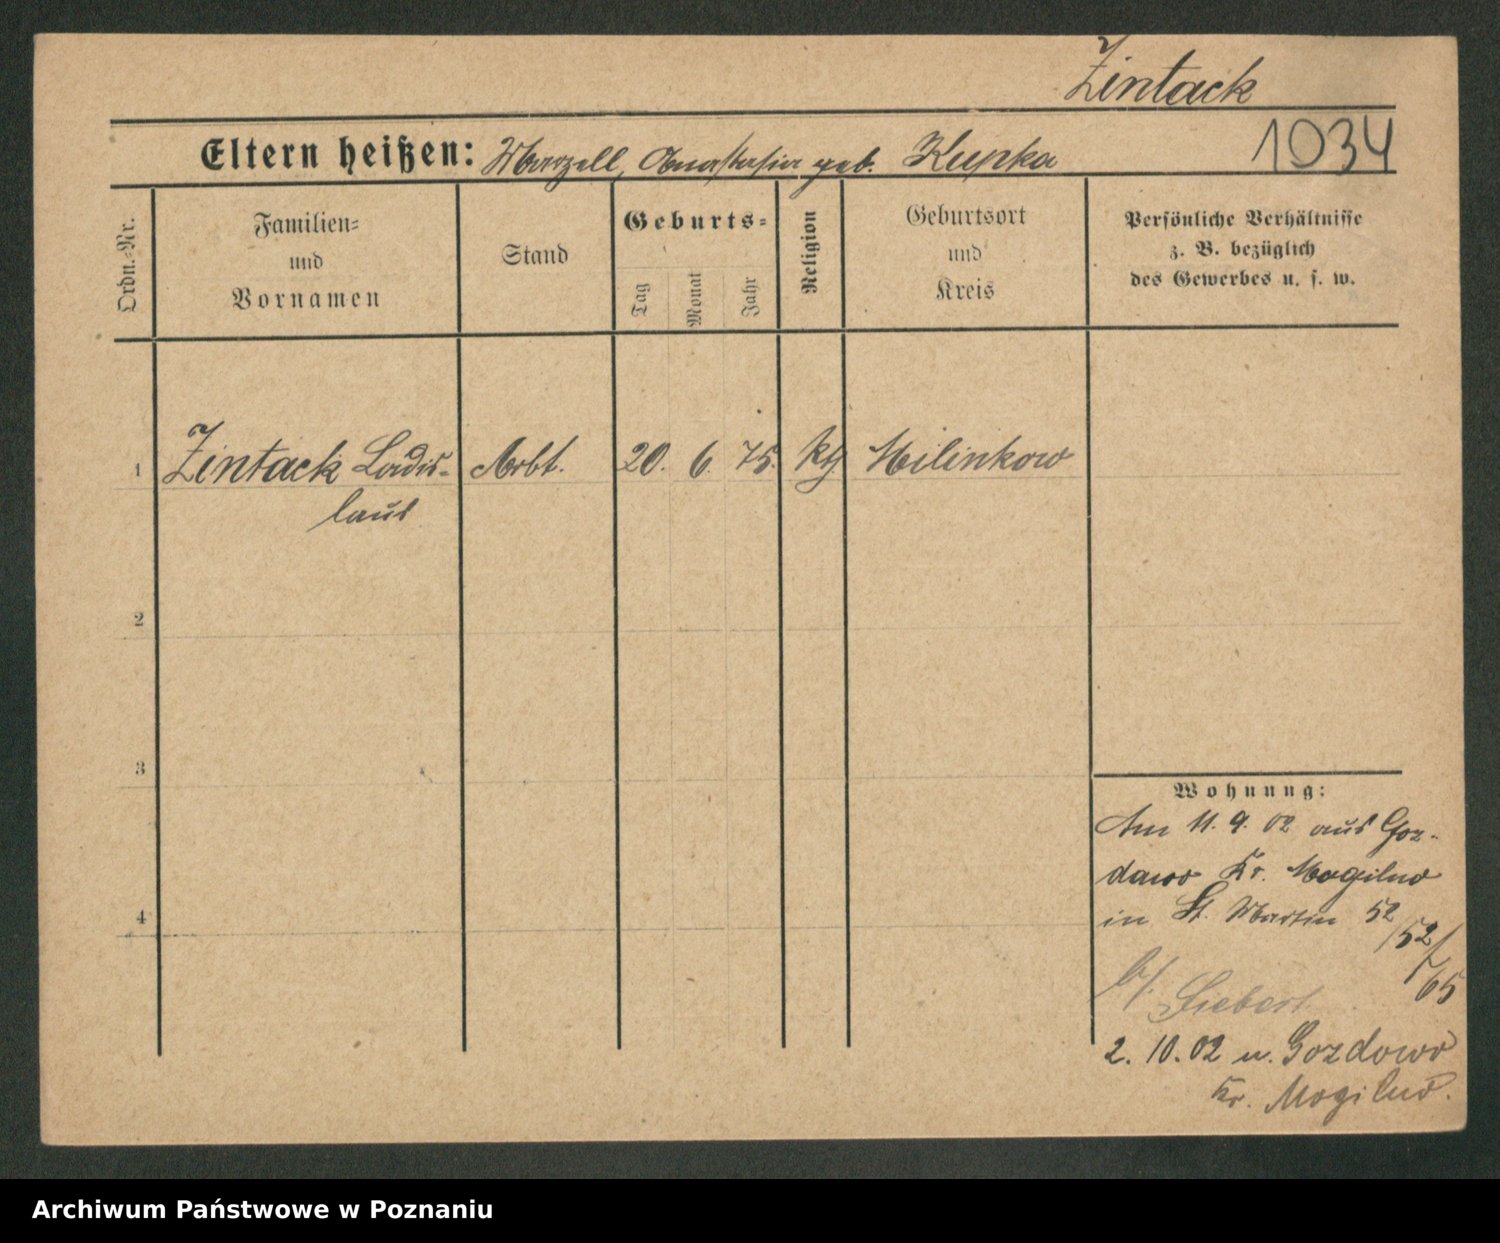 Zintack
Eltern heißen: Marzell, Anastasia geb. Kupka
1034
Ordn.-Nr.
Familien-
und
Vornamen
Stand
Geburts-
Tag
Monat
Jahr
Religion
Geburtsort
und
Kreis
Persönliche Verhältnisse
z. B. bezüglich
des Gewerbes u. s. w.
1 Zintack Ladis- Arbt. 20. 6. 75. kth Milinkow
laus
2
3
4
Wohnung:
Am 11. 9. 02 aus Goz-
dawo Kr. Mogilno
in St. Martin 52
52/
65
b/. Siebert
2. 10. 02 n. Gozdowo
Kr. Mogilno.
Archiwum Państwowe w Poznaniu